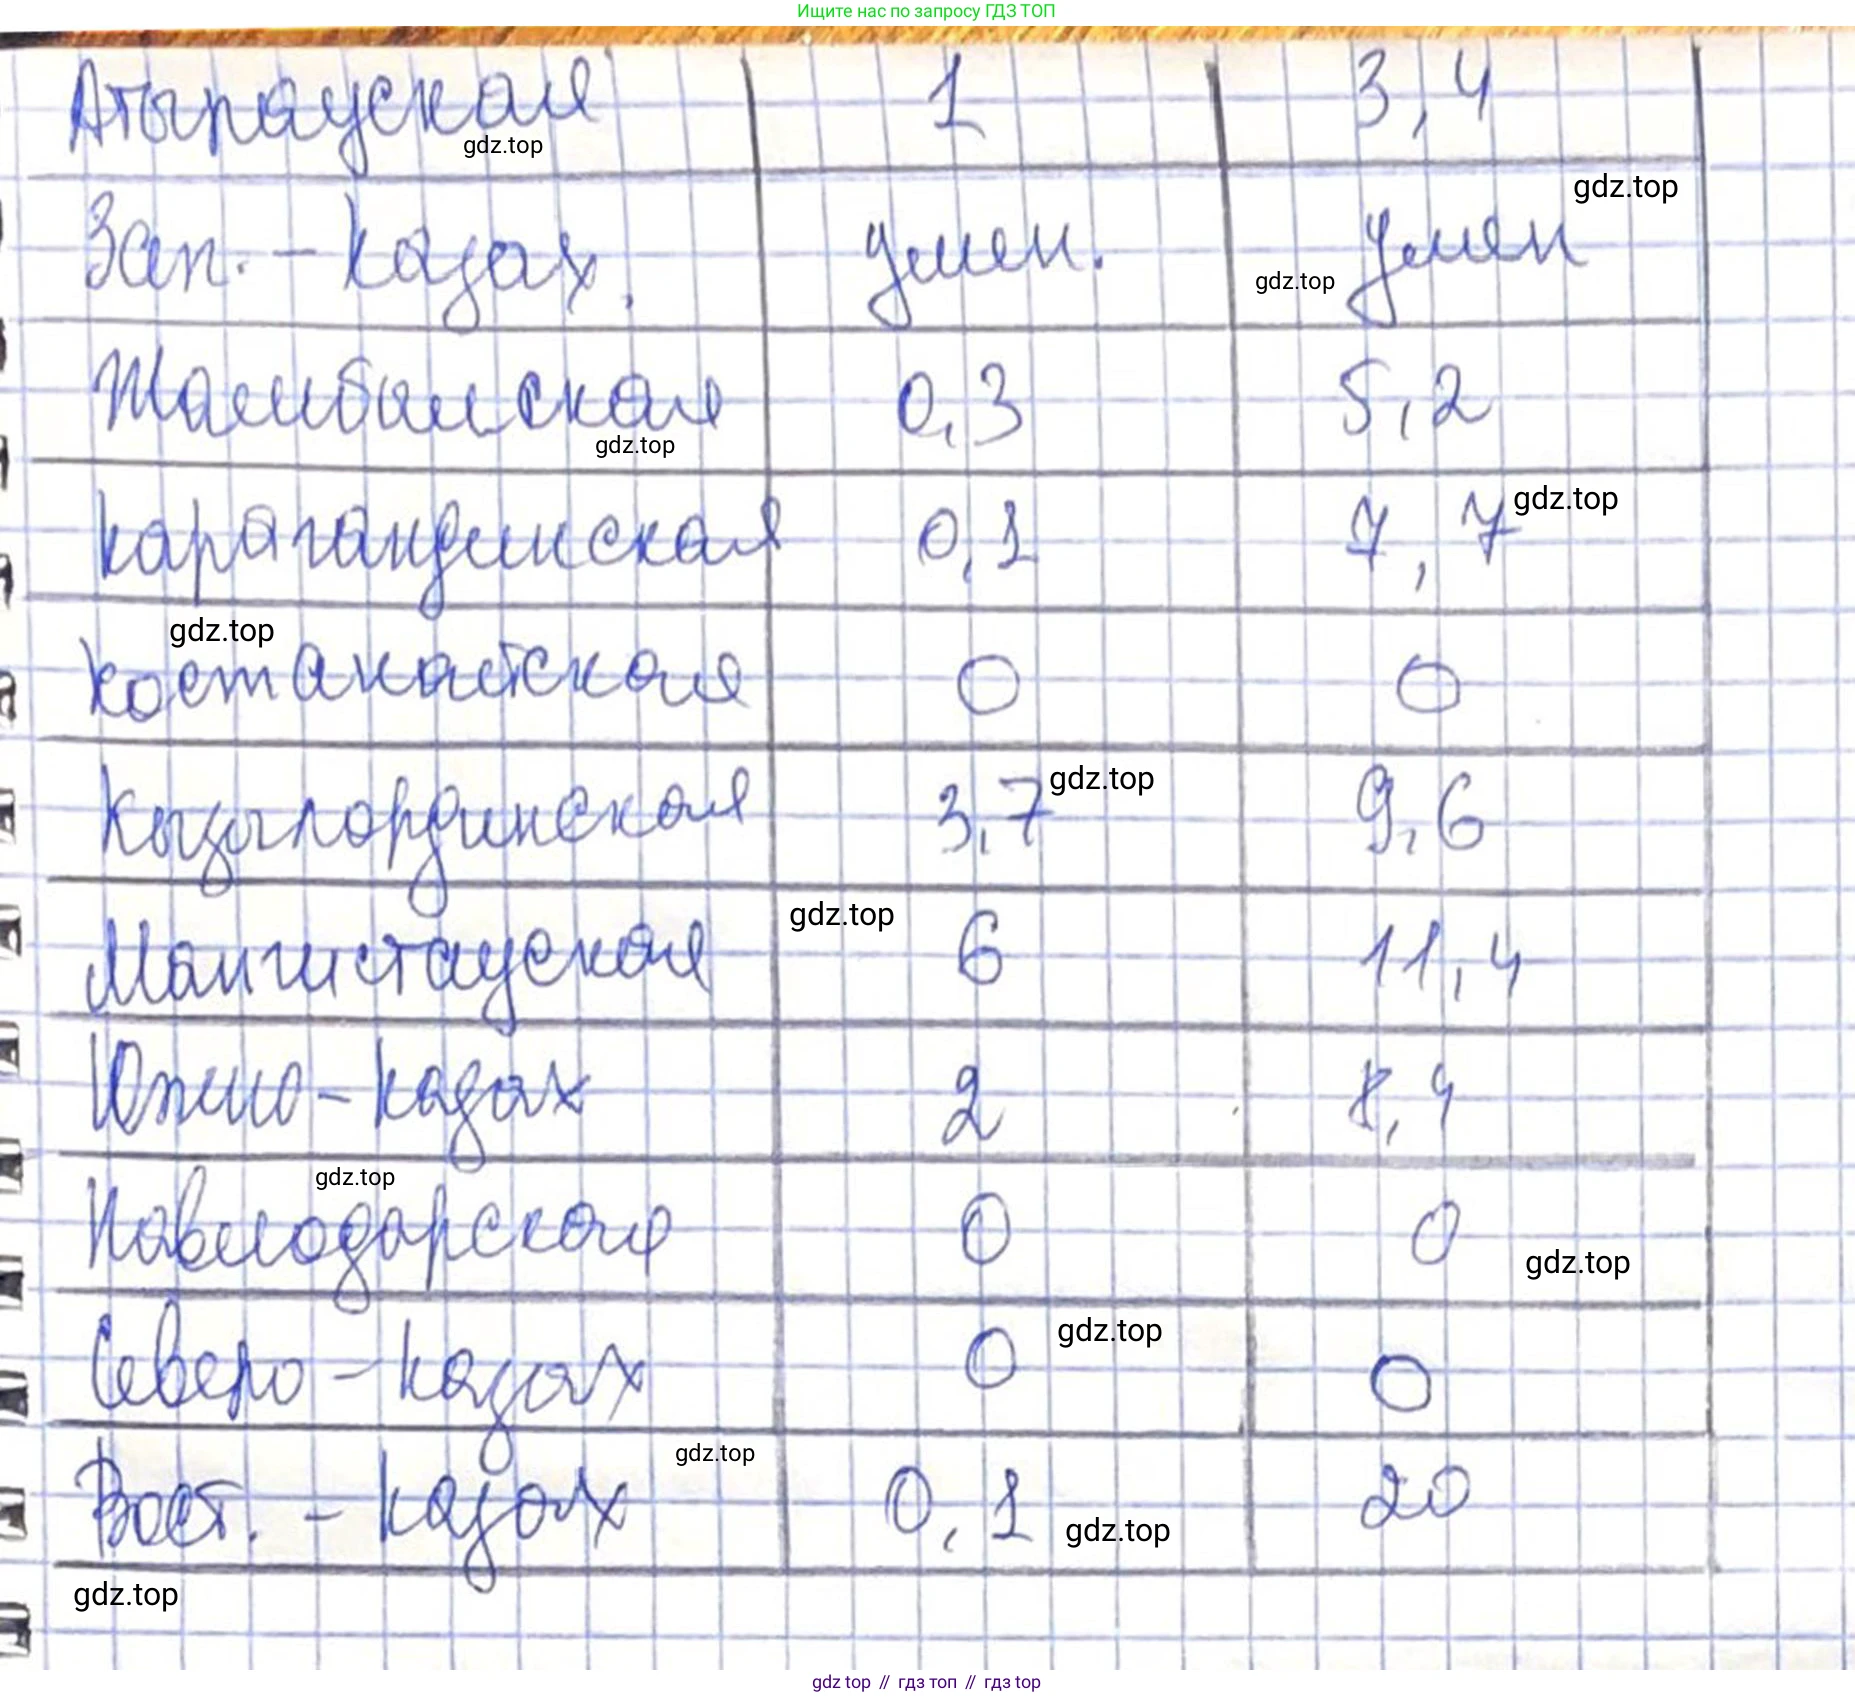 Ищите нас по запросу ГДЗ ТОП
Атырауская 1 3,4
gdz.top
gdz.top
Зап. - Казах. умен. умен
gdz.top
Жамбылская 0,3 5,2
gdz.top
Карагандинская 0,1 7,7
gdz.top
gdz.top
Костанайская 0 0
Кызылординская 3,7 9,6
gdz.top
gdz.top
Мангистауская 6 11,4
Южно - Казах 2 8,4
gdz.top
Павлодарская 0 0
gdz.top
Северо - Казах 0 0
gdz.top
gdz.top
Вост. - Казах 0,1 20
gdz.top
gdz.top
gdz top // гдз топ // гдз top